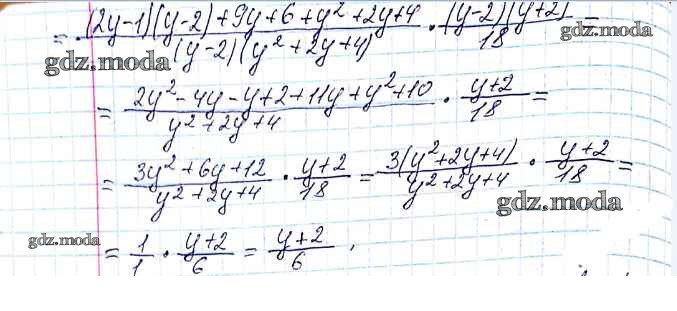 = (2y-1)(y-2)+9y+6+y²+2y+4 / (y-2)(y²+2y+4) · (y-2)(y+2) / 18 =
gdz.moda
gdz.moda
= 2y²-4y-y+2+11y+y²+10 / y²+2y+4 · y+2 / 18 =
= 3y²+6y+12 / y²+2y+4 · y+2 / 18 = 3(y²+2y+4) / y²+2y+4 · y+2 / 18 =
gdz.moda
gdz.moda
= 1/1 · y+2 / 6 = y+2 / 6 .